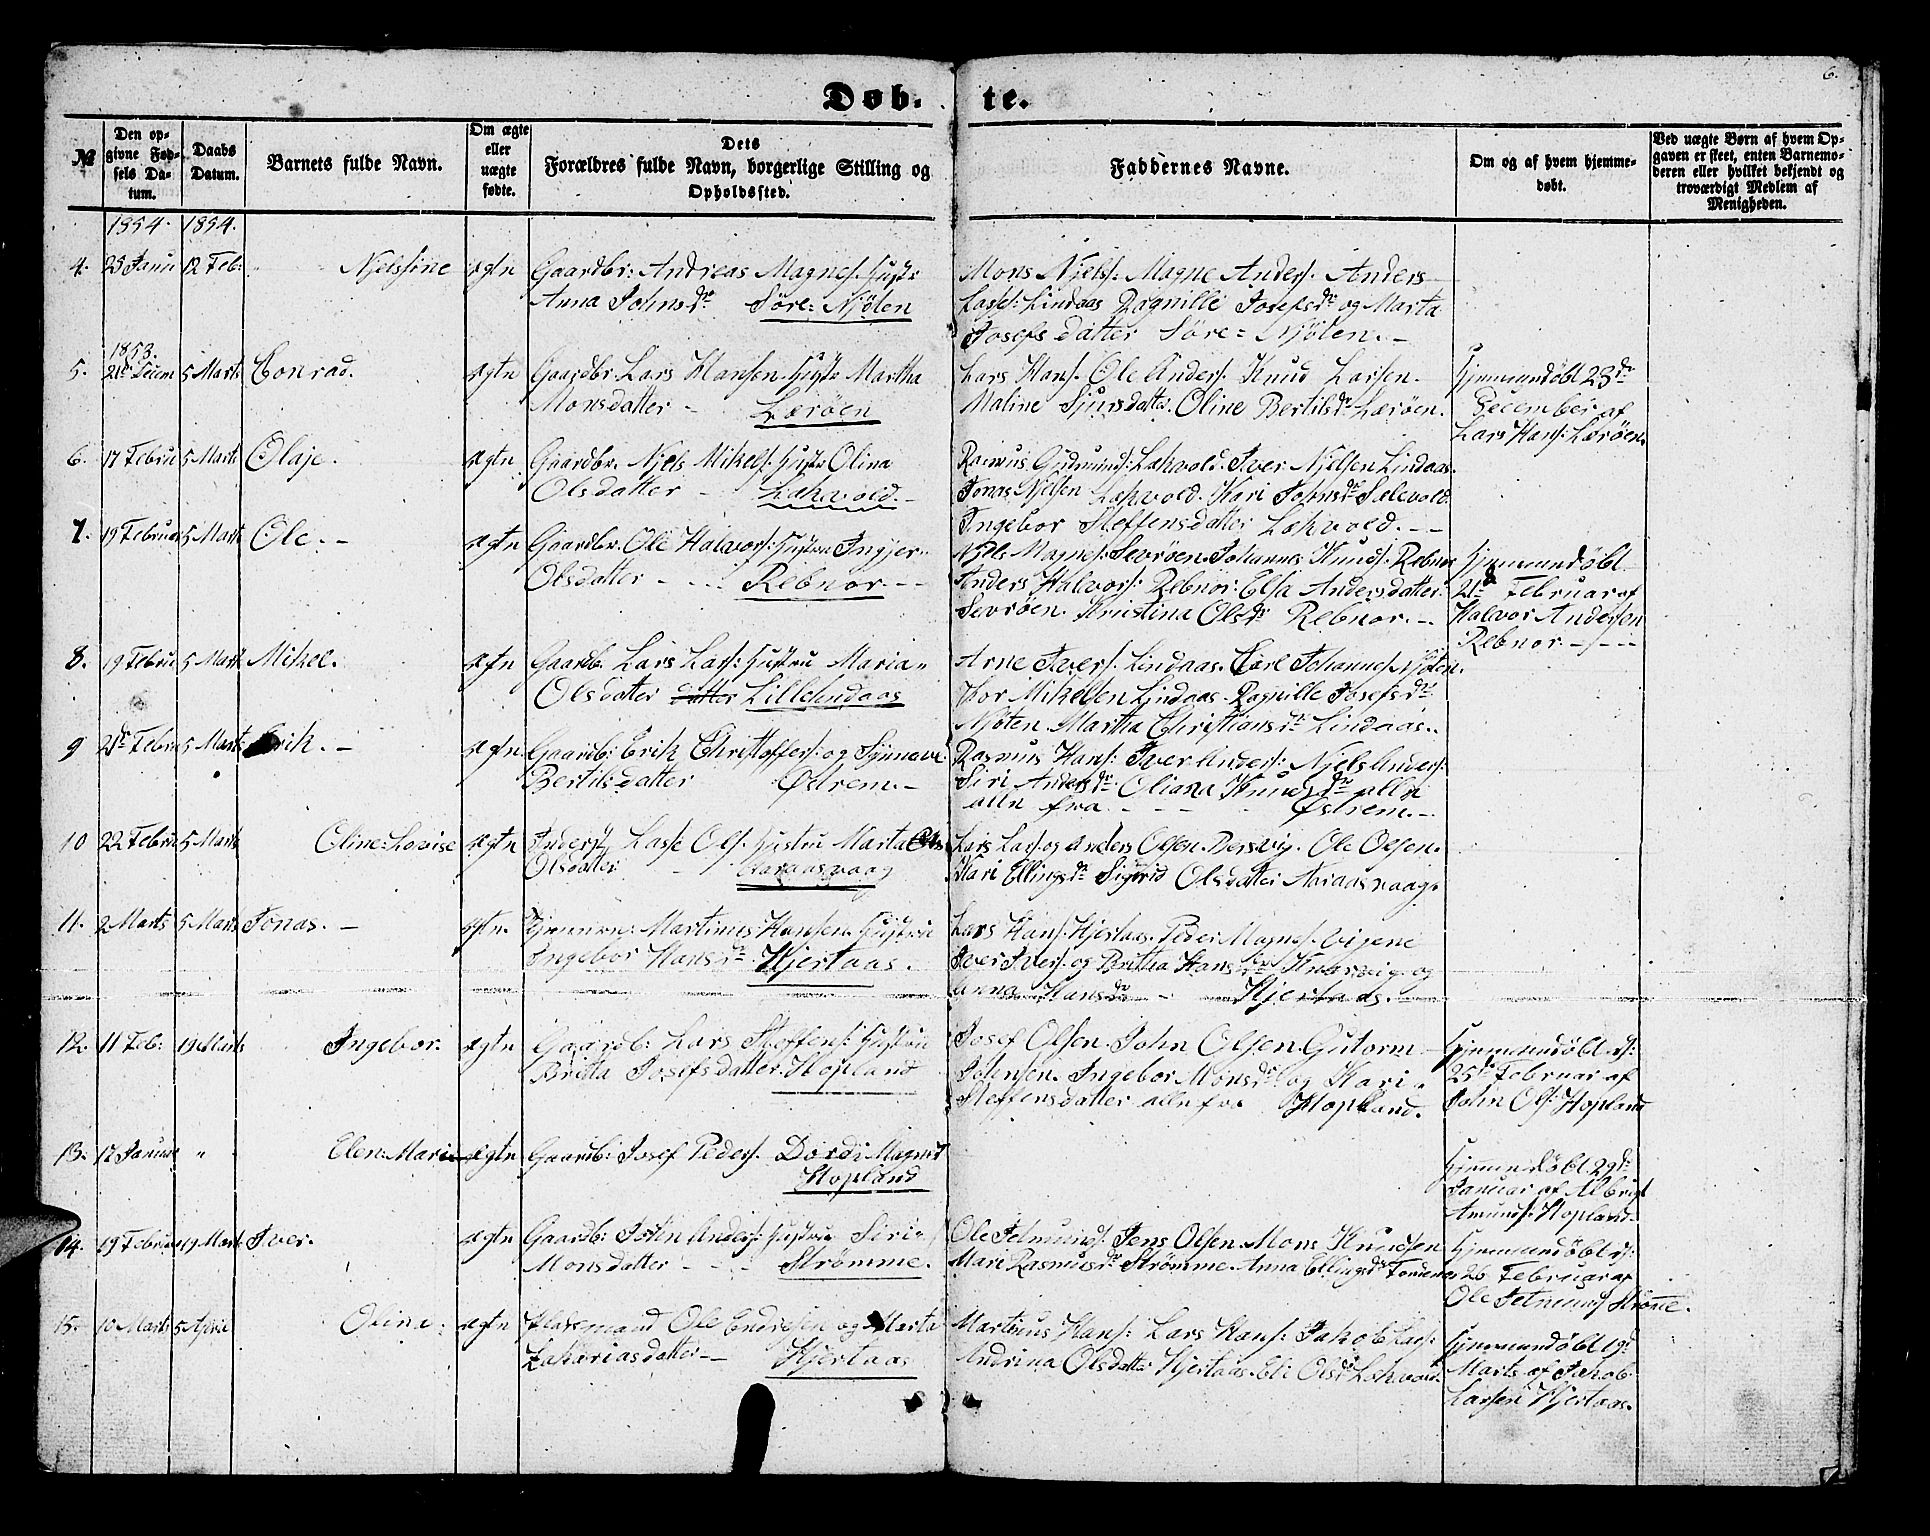 6.
Døb- te.
№ | Den op-givne Føds-sels Da-tum. | Daabs Datum. | Barnets fulde Navn. | Om ægte eller uægte fødte. | Dets Forældres fulde Navn, borgerlige Stilling og Opholdssted. | Faddernes Navne. | Om og af hvem hjemme-døbt. | Ved uægte Børn af hvem Op-gaven er skeet, enten Barnemo-deren eller hvilket bekjendt og troværdigt Medlem af Menigheden.
1854. 1854.
4. 12 Feb: Njelssine ægtn Gaardbr: Andreas Magnes. Hustr
Anna Johnsdr Søre: Njøten
Mons Njels: Magne Anders. Anders
Lasse: Lindaas Ragnille Josefsdr og Marta
Josefs datter Søre = Njøten. -
1853.
5. 5 Mart: Conrad. ægtn Gaardbr. Lars Hansen. Hustr Martha
Monsdatter - Lærøen
Lars Hans. Ole Anders. Knud Larsen.
Maline Sjursdatter. Oline Bertilsdr Lærøen.
Hjemmendøbt 23de
December af
Lars Hans: Lærøen.
6. 17 Febru 5 Mart: Olaje. ægtn. Gaardbr. Njels Mikels. Hustr Olina
Olsdatter - Lekvold. -
Rasmus Gudmunds: Lekvold. Iver Njelsen Lindaas.
Jonas Njelsen Lekvold. Kari Johnsdr Sælevold.
Ingebor Steffensdatter Lekvold. - -
7. 19 Februar 5 Mart Ole. - ægtn Gaardbr. Ole Halvors: Hustru Ingjer
Olsdatter - - Rebnor. - -
Njels Magnes. Sevrøen. Johannes Knuds. Rebnor
Anders Halvors: Rebnor. Elsa Andersdatter
Sevrøen. Kristina Olsdr Rebnor. -
Hjemmendøbt
21de Februar af
Halvor Andersen
Rebnor. - - -
8. 19 Febru 5 Mart Mikel. ægtn Gaardb. Lars Lars: Hustru Maria
Olsdatter datter Lillelindaas
Arne Ivers. Lindaas. Carl Johannes Njøten.
Thor Mikelsen Lindaas. Ragnille Josefsdr
Njøten. Martha Christiansdr Lindaas.
9 5 Marts Erik. - ægtn Gaardb: Erik Christoffers: og Synneve
Bertilsdatter Østrem. -
Rasmus Hans: Iver Anders: Njels Anders:
Siri Andersdr Oliana Knudsdr alle
alle fra - - Østrem. -
10 22 Febru 5 Mart Oline: Lovise ægtn Inders: Lasse Ols. Hustru Marta
Olsdatter - Aaraasvaag
Lars Lars. og Anders Olsen. Bersvig. Ole Olsen.
Kari Ellingsdr Sigrid Olsdatter Aaraasvaag.
11. 2 Marts 5 Mart Jonas. - ægtn. Martinus Hansen. Hustru
Ingebor Hansdr. Hjertaas.
Lars Hans. Hjertaas. Peder Magnes. Vigene
Iver Ivers. og Britha Hansdr Knarvig. og
Anna Hansdr - Hjertaas.
12. 11 Feb: 19 Marts Ingebor. ægtn Gaardb: Lars Steffens: Hustru
Brita Josefsdatter. Hopland
Josef Olsen. John Olsen. Gutorm
Johnsen. Ingebor Monsdr og Kari
Steffensdatter alle fra Hopland.
Hjemmendøbt d:
25de Februar af
John Ols: Hopland
13. 17 Januar " Elen: Marie ægtn Gaardb: Josef Peders. Dordi Magnsd
Hopland
Hjemmendøbt 29de
Januar af Albrigt
Amunds: Hopland.
14. 19 Februar 19 Mart Iver. ægtn Gaardb: Josten Anders: Hustru Siri
Monsdatter - - Strømme.
Ole Jetmunds. Jens Olsen. Mons Knudsen
Mari Rasmusdr Strømme. Anna Ellingsdr Fondenes
Hjemmendøbt d:
26 Februar af
Ole Jetmunds Strømme.
15. 10 Marts 5 April Oline: ægtn Pladsmand Ole Endresen og Marta
Zakariasdatter - Hjertaas
Martinus Hans: Lars Hans: Jakob Lars:
Andrina Olsdatter Hjertaas. Eli Olsdr Lekvold.
Hjemmendøbt 19d
Marts af Jakob
Larsen Hjertaas.